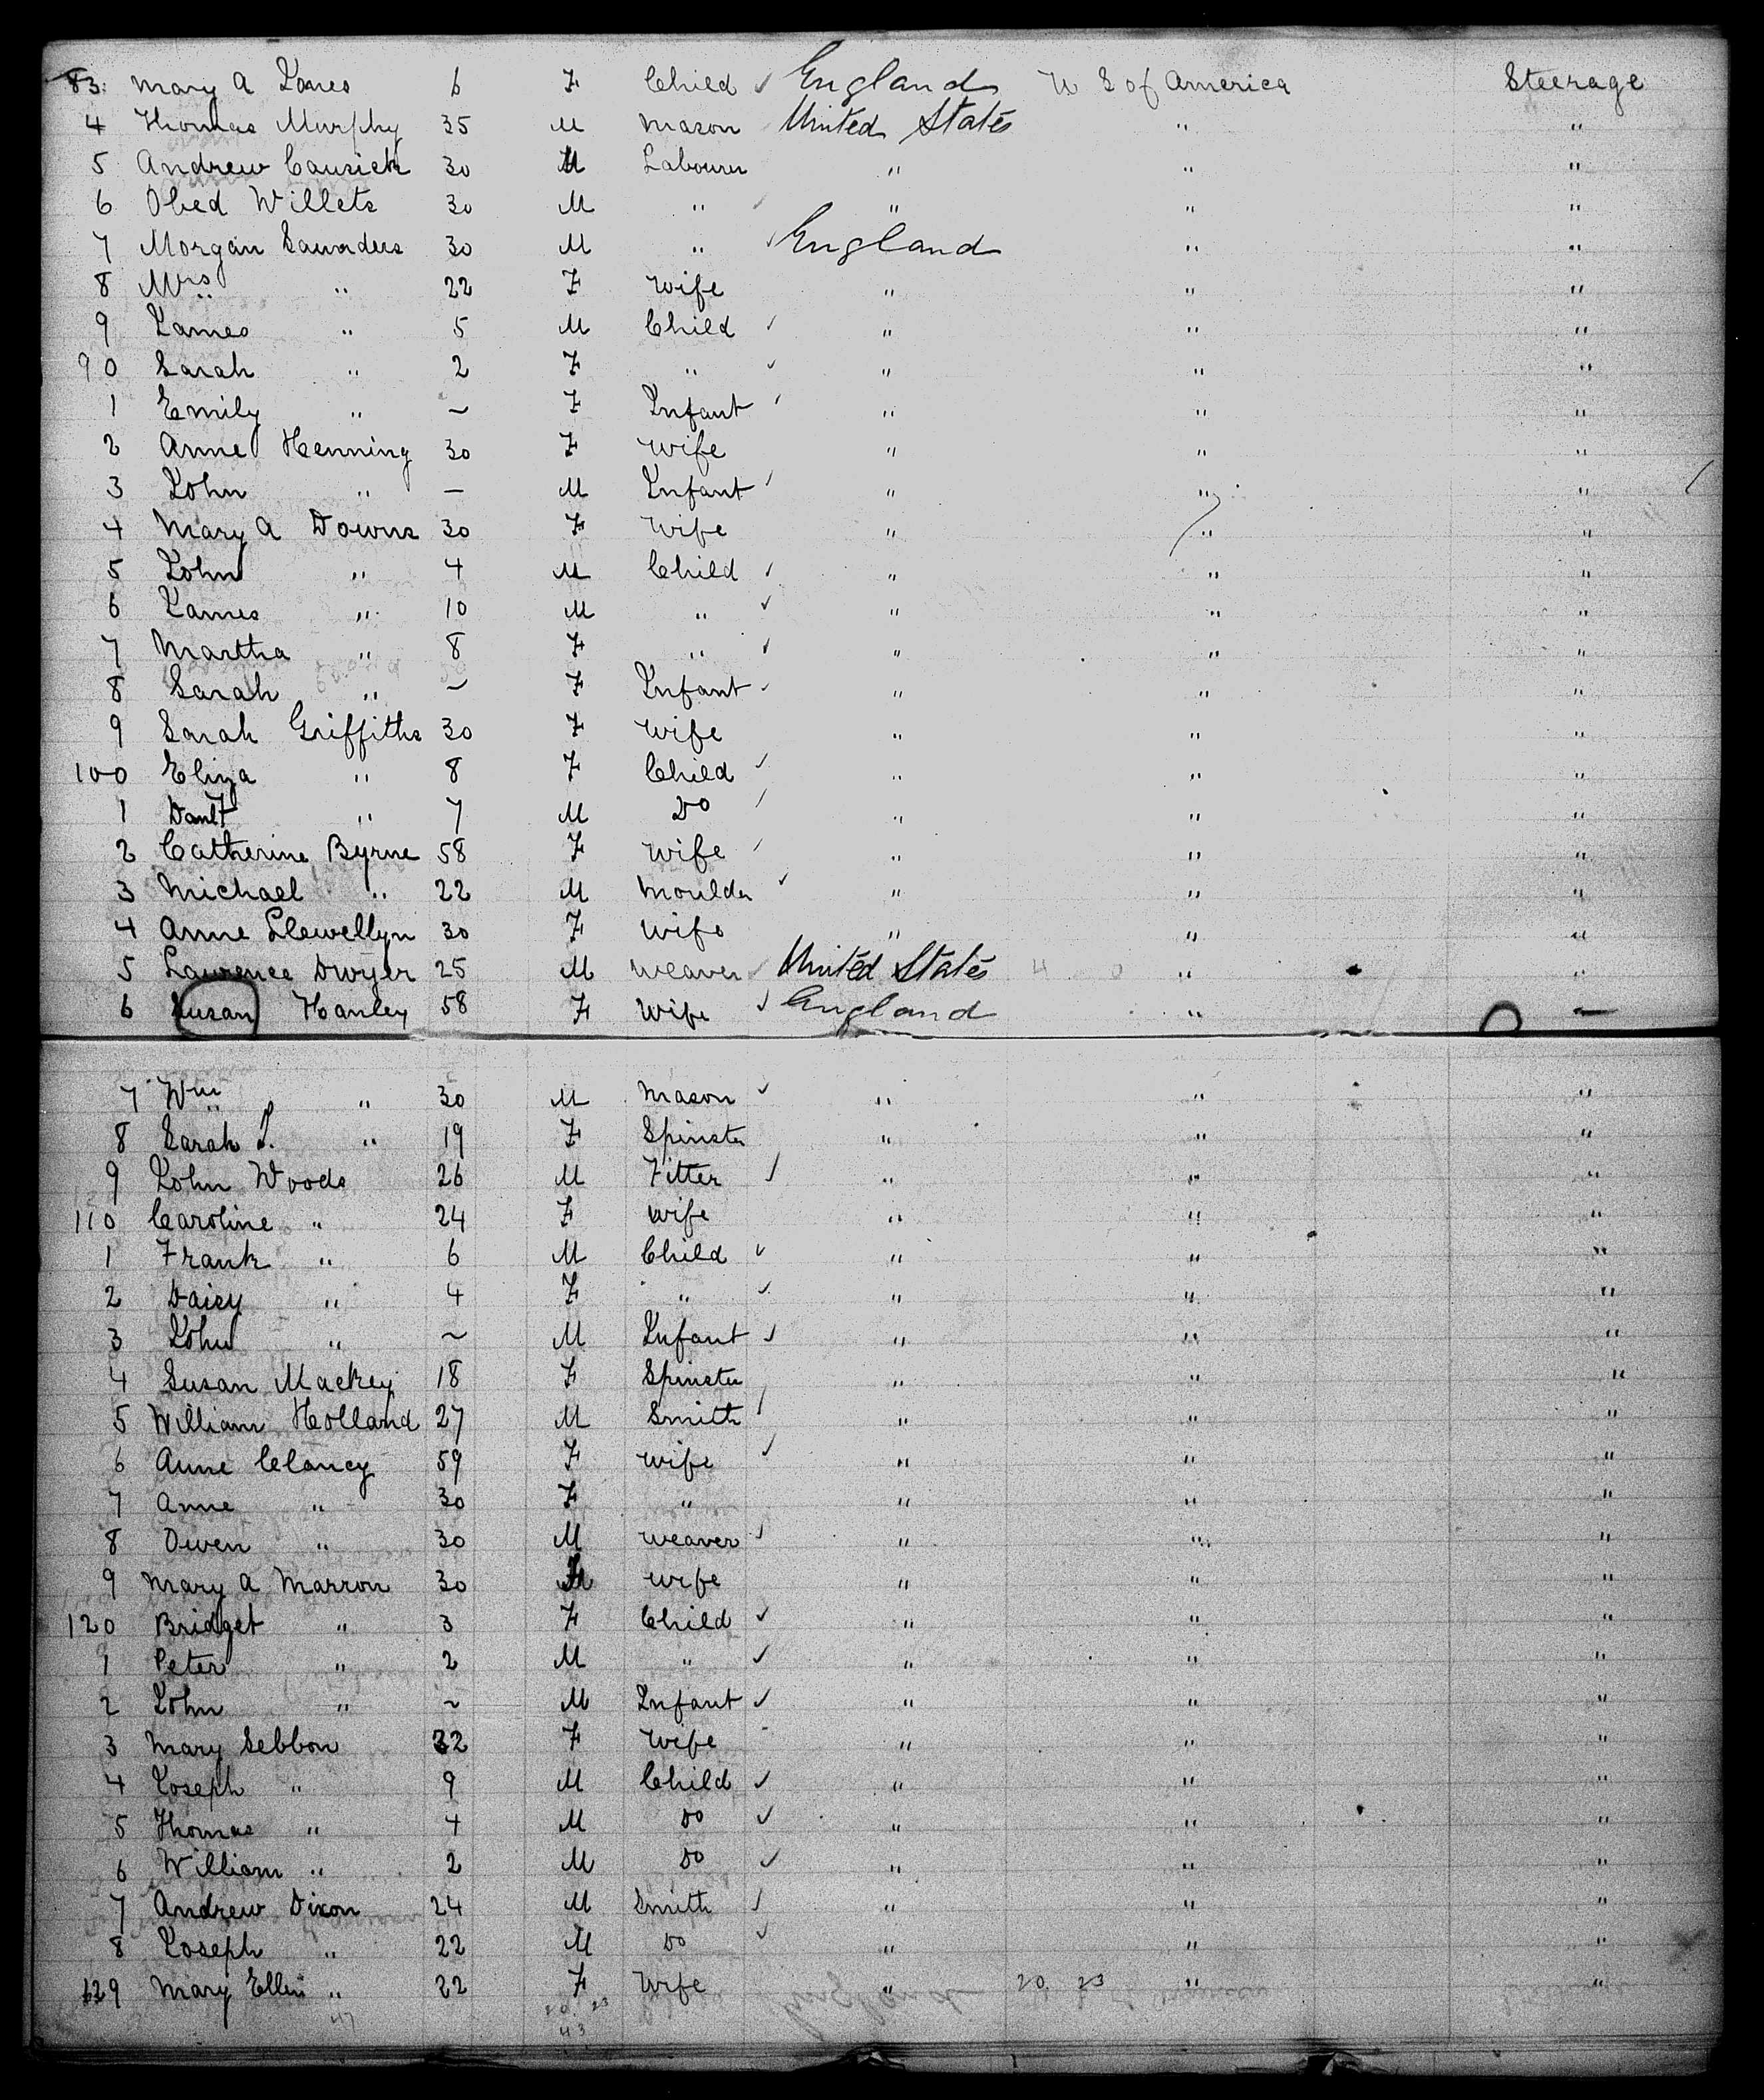 83. Mary A Jones 6 F Child ✓ England U S of America Steerage
4 Thomas Murphy 35 M Mason United States " "
5 Andrew Cusick 30 M Labourer " " "
6 Obed Willets 30 M " " " "
7 Morgan Saunders 30 M " ✓ England " "
8 Mrs " 22 F Wife " " "
9 James " 5 M Child ✓ " " "
90 Sarah " 2 F " ✓ " " "
1 Emily " ~ F Infant ✓ " " "
2 Anne Henning 30 F Wife " " "
3 John " — M Infant ✓ " " "
4 Mary A Downs 30 F Wife " " "
5 John " 4 M Child ✓ " " "
6 James " 10 M " ✓ " " "
7 Martha " 8 F " ✓ " " "
8 Sarah " ~ F Infant ✓ " " "
9 Sarah Griffiths 30 F Wife " " "
100 Eliza " 8 F Child ✓ " " "
1 " 7 M Do ✓ " " "
2 Catherine Byrne 58 F Wife ✓ " " "
3 Michael " 22 M Moulder ✓ " " "
4 Anne Llewellyn 30 F Wife " " "
5 Lawrence Dwyer 25 M Weaver ✓ United States " "
6 Susan Hanley 58 F Wife ✓ England " "
7 Wm " 30 M Mason ✓ " " "
8 Sarah J. " 19 F Spinster " " "
9 John Woods 26 M Fitter ✓ " " "
110 Caroline " 24 F Wife " " "
1 Frank " 6 M Child ✓ " " "
2 Daisy " 4 F " ✓ " " "
3 John " ~ M Infant ✓ " " "
4 Susan Mackey 18 F Spinster " " "
5 William Holland 27 M Smith ✓ " " "
6 Anne Clancy 59 F Wife ✓ " " "
7 Anne " 30 F " " " "
8 Owen " 30 M Weaver ✓ " " "
9 Mary A Marron 30 F Wife " " "
120 Bridget " 3 F Child ✓ " " "
1 Peter " 2 M " ✓ " " "
2 John " ~ M Infant ✓ " " "
3 Mary Sebbon 32 F Wife " " "
4 Joseph " 9 M Child ✓ " " "
5 Thomas " 4 M Do ✓ " " "
6 William " 2 M Do ✓ " " "
7 Andrew Dixon 24 M Smith ✓ " " "
8 Joseph " 22 M Do ✓ " " "
129 Mary Ellen " 22 F Wife " 20 23 " "
47 20 23
43